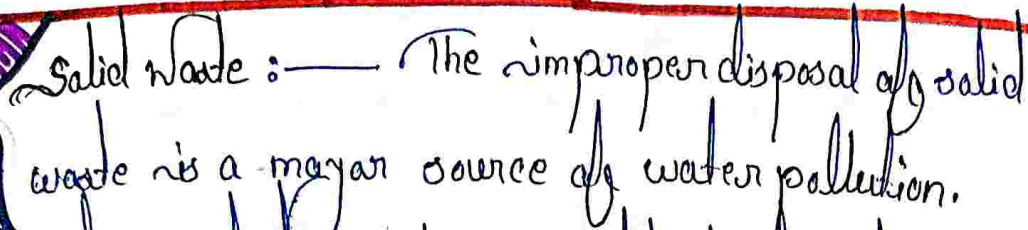 Solid Waste :— The improper disposal of solid
waste is a mayor source of water pollution.